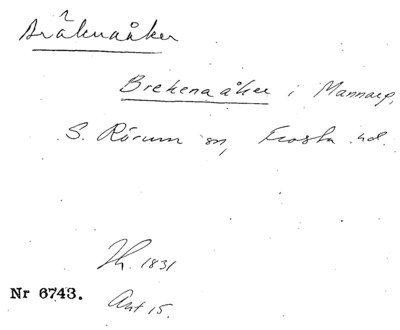 Bräknaåker
Brekenaåker i Mannarp,
S. Rörum sn, Frosta hd.
Th. 1831
Nr 6743. Ant 15.